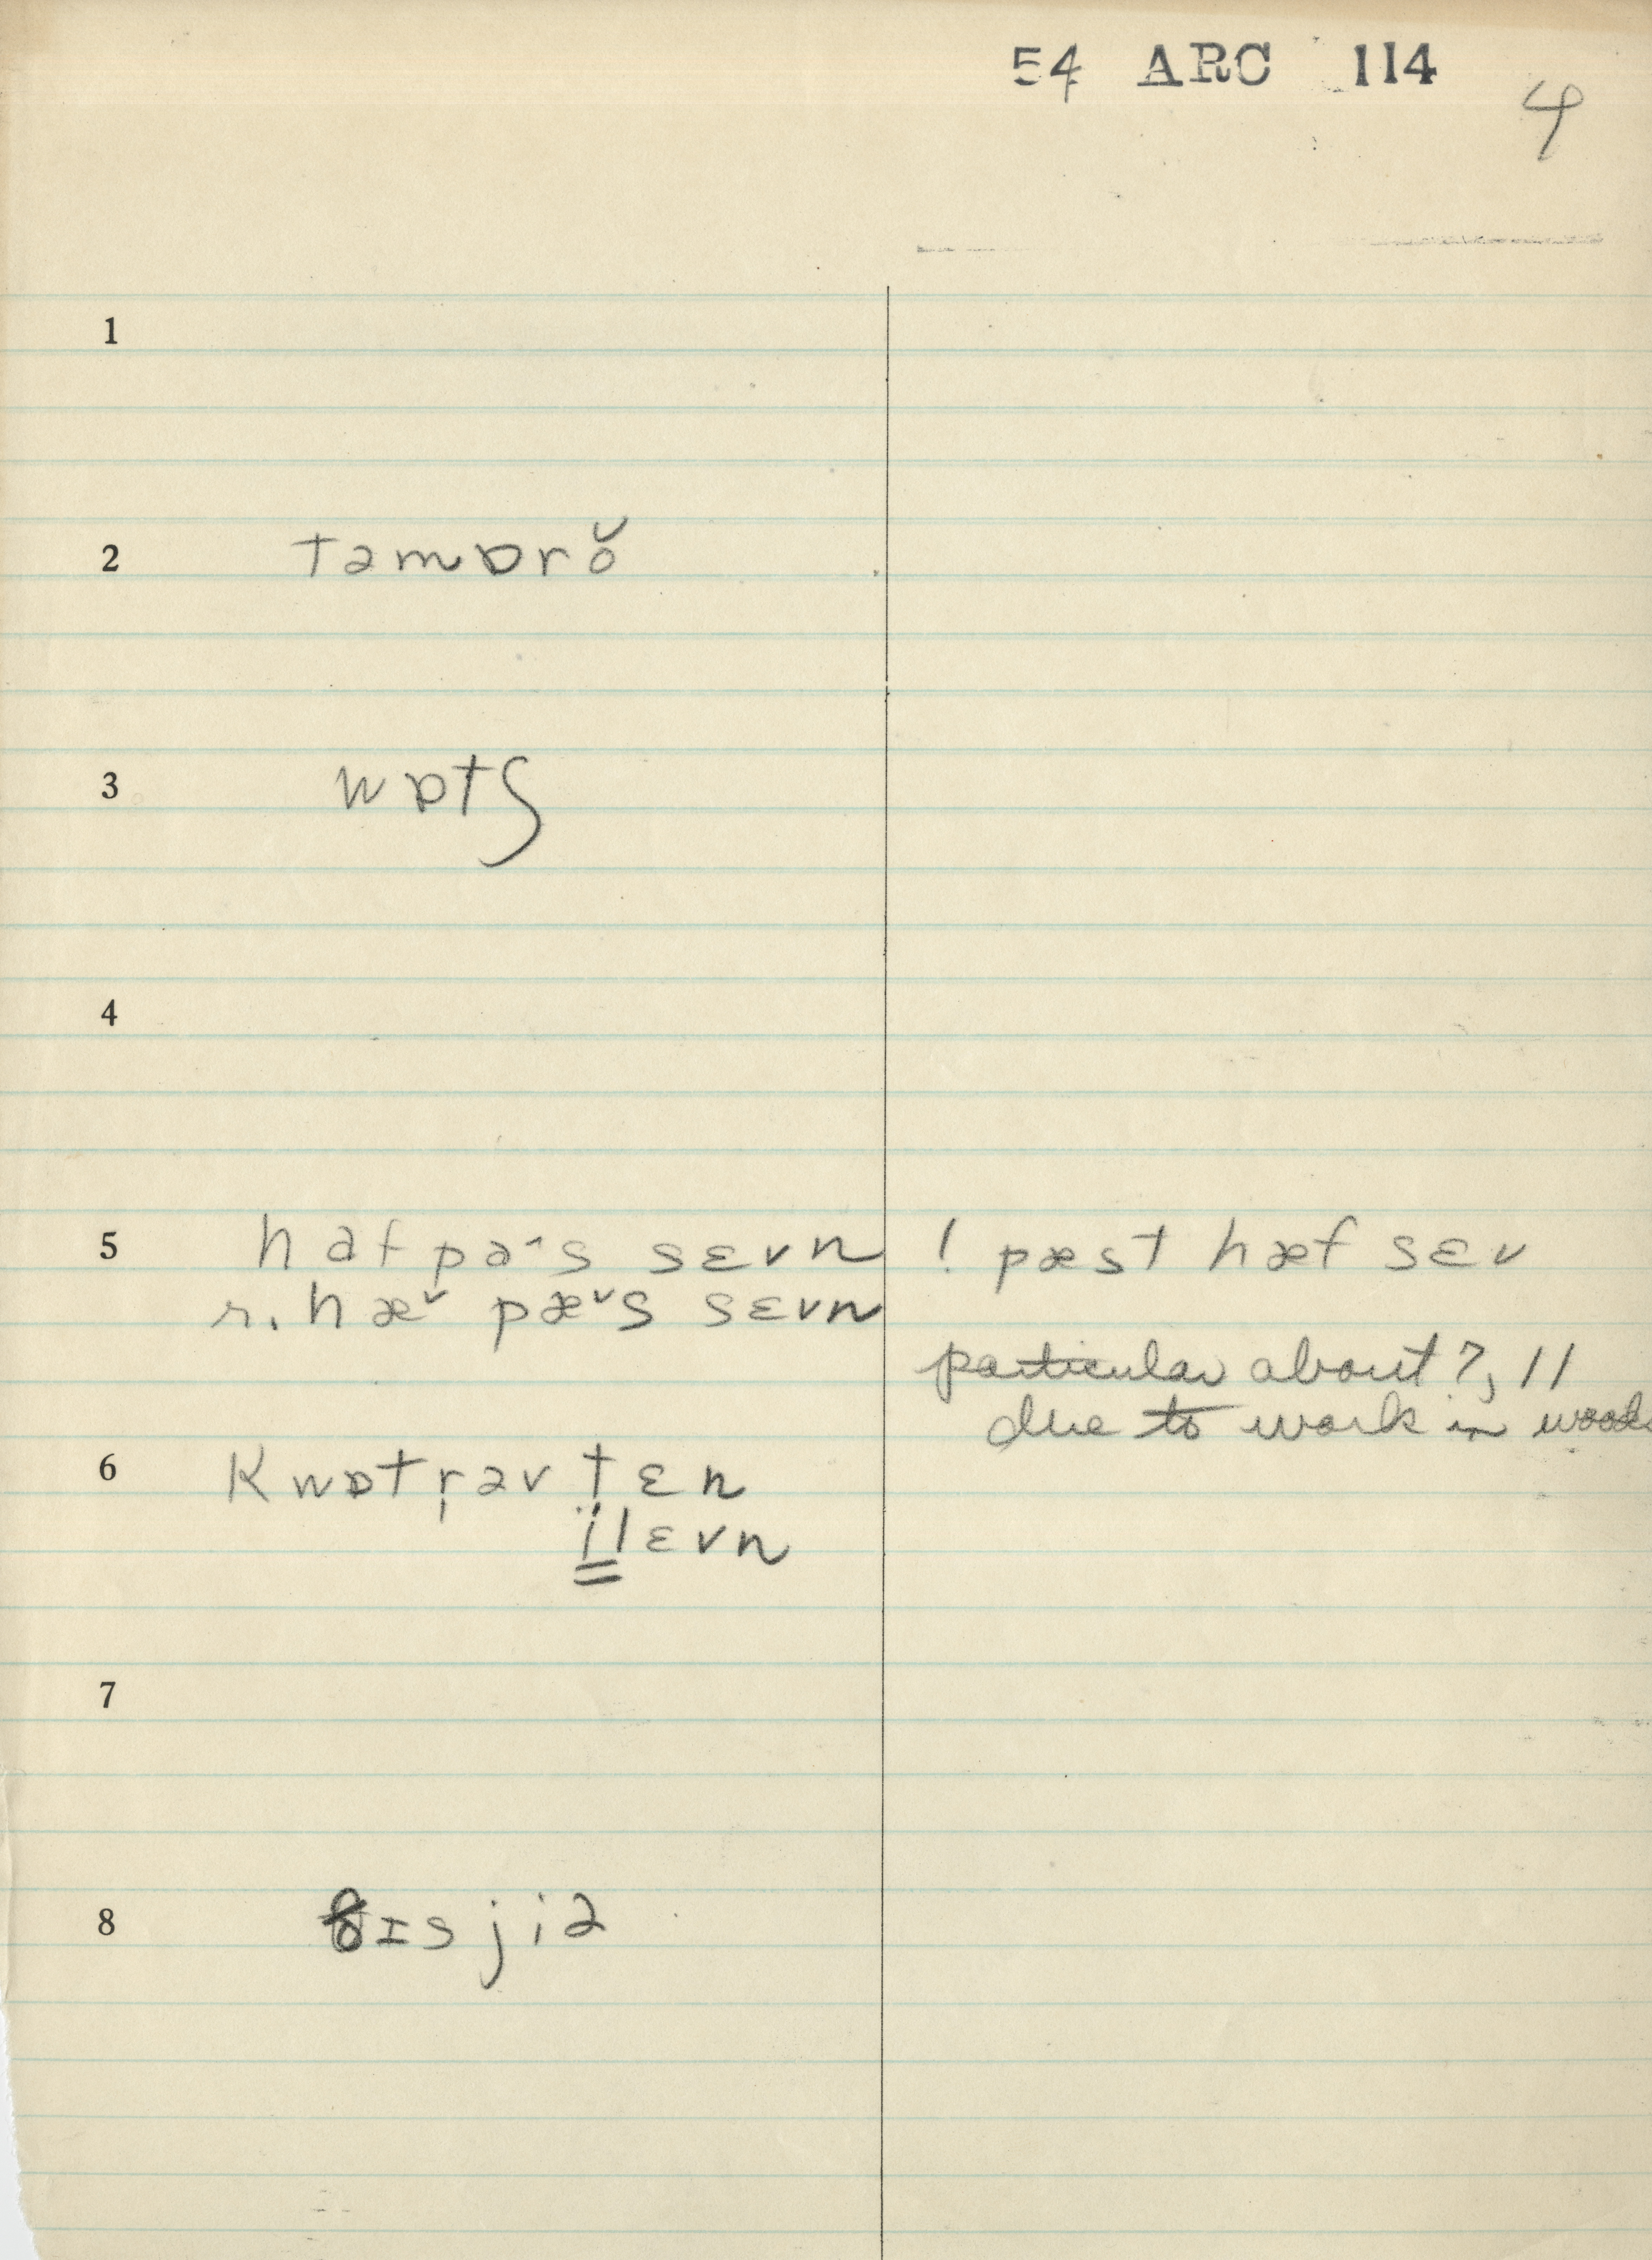 54 ARC 114
4
1
2 tamɒrŏ
3 wɒtʃ
4
5 haf pa˄s sɛvn ! pæst hæf sɛv
r. hæ˅ pæ˅s sɛvn
particular about ?, 11
due to work in woods
6 Kwɒtṛəv tɛn
ïlɛvn
7
8 ɪsjiə